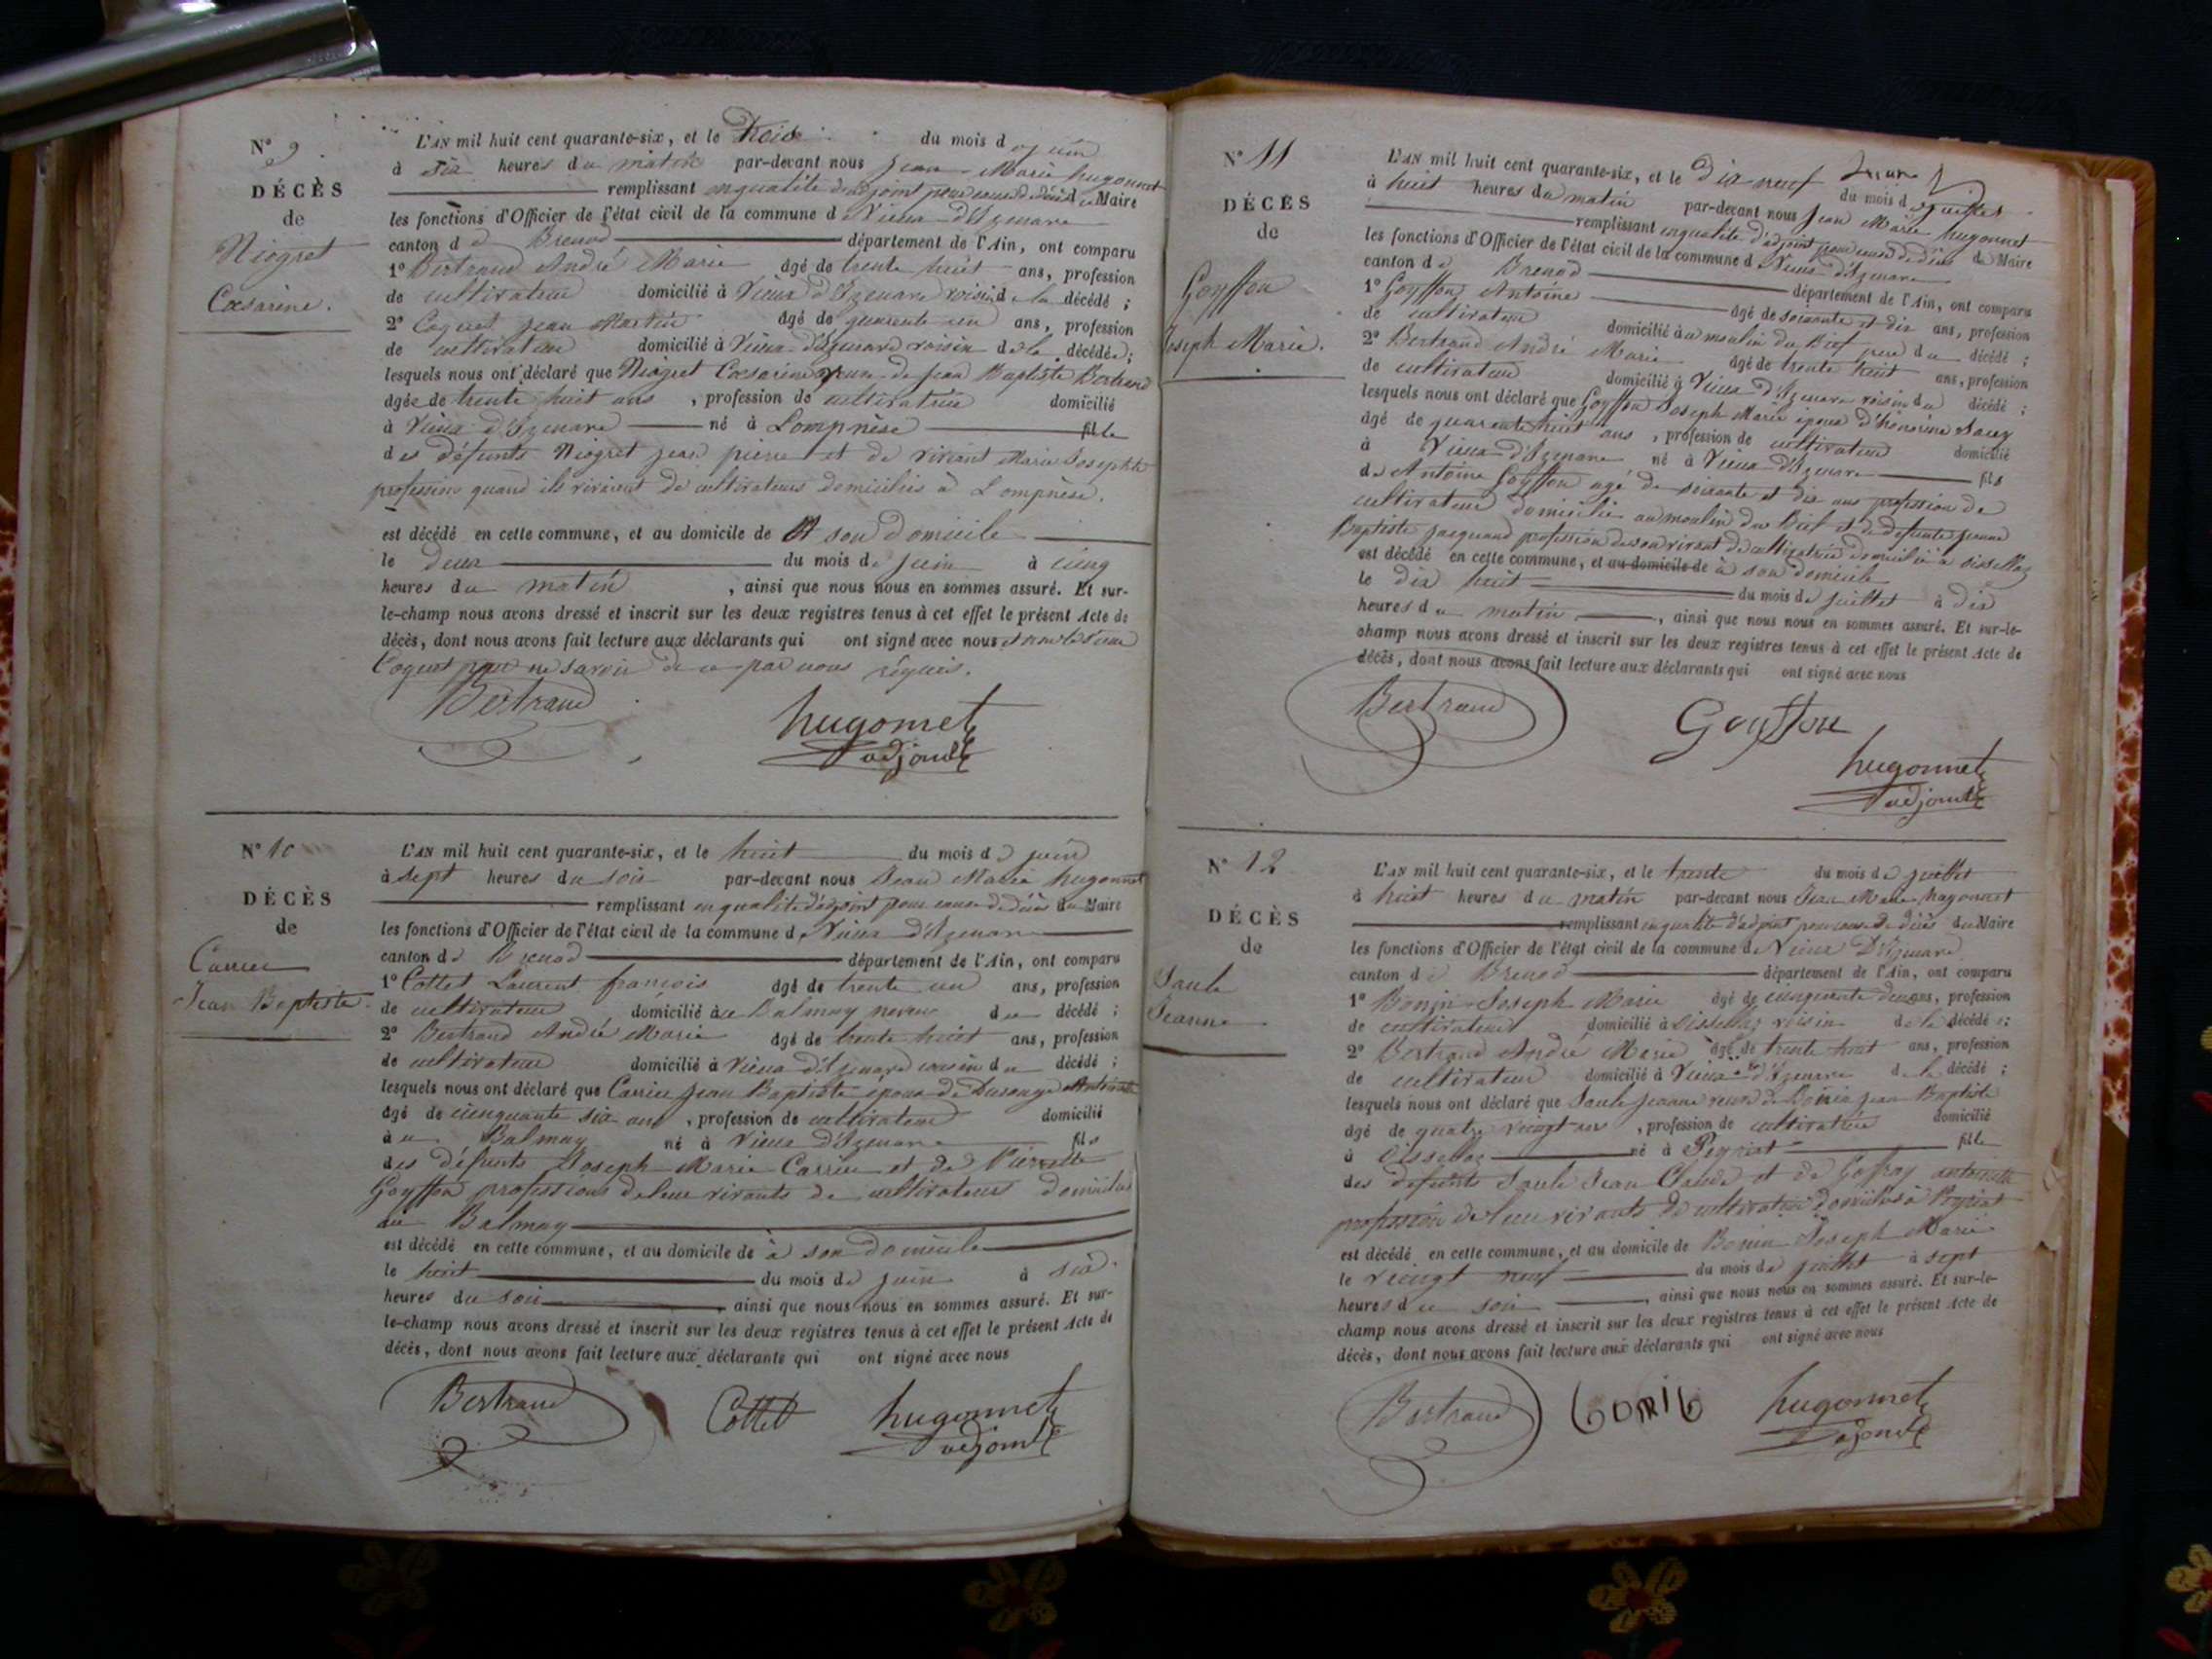 N° 9
DÉCÈS
de
Niogret
Cæsarine.
L'AN mil huit cent quarante-six, et le trois du mois de juin
à six heures du matin par-devant nous Jean Marie hugonnet
remplissant en qualité d'adjoint pour cause de décès du Maire
les fonctions d'Officier de l'état civil de la commune de Vieux d'Izenave
canton de Brenod département de l'Ain, ont comparu
1° Bertrand André Marie âgé de trente huit ans, profession
de cultivateur domicilié à Vieux d'Izenave voisin de la décédé ;
2° Coquet jean Martin âgé de quarente un ans, profession
de cultivateur domicilié à Vieux d'Izenave voisin de la décédée ;
lesquels nous ont déclaré que Niogret Cæsarine de Jean Baptiste Bertrand
âgée de trente huit ans , profession de cultivatrice domicilié
à Vieux d'Izenave né à Lompnèse fille
des défunts Niogret jean pierre et de vivant Marie Josephte
profession quand ils vivaient de cultivateurs domiciliés à Lompnèse.
est décédé en cette commune, et au domicile de A son domicile
le deux du mois de juin à cinq
heures du matin , ainsi que nous nous en sommes assuré. Et sur-
le-champ nous avons dressé et inscrit sur les deux registres tenus à cet effet le présent Acte de
décès, dont nous avons fait lecture aux déclarants qui ont signé avec nous et non le sieur
Coquet pour ne savoir de ce par nous requis.
Bertrand
hugonnet
adjoint
N° 10
DÉCÈS
de
Carrier
Jean Baptiste
L'AN mil huit cent quarante-six, et le huit du mois de juin
à sept heures du soir par-devant nous Jean Marie hugonnet
remplissant en qualité d'adjoint pour cause de décès du Maire
les fonctions d'Officier de l'état civil de la commune de Vieux d'Izenave
canton de Brenod département de l'Ain, ont comparu
1° Cottet Laurent françois âgé de trente un ans, profession
de cultivateur domicilié au Balmay neveu du décédé ;
2° Bertrand André Marie âgé de trente huit ans, profession
de cultivateur domicilié à Vieux d'Izenave voisin du décédé ;
lesquels nous ont déclaré que Carrier Jean Baptiste époux de
âgé de cinquante six ans , profession de cultivateur domicilié
au Balmay né à Vieux d'Izenave fils
des défunts Joseph Marie Carrier et de Pierrette
Goyffon professions de leur vivants de cultivateurs domiciliés
au Balmay
est décédé en cette commune, et au domicile de à son domicile
le huit du mois de juin à six
heures du soir , ainsi que nous nous en sommes assuré. Et sur-
le-champ nous avons dressé et inscrit sur les deux registres tenus à cet effet le présent Acte de
décès, dont nous avons fait lecture aux déclarants qui ont signé avec nous
Bertrand Cottet hugonnet
adjoint
N° 11
DÉCÈS
de
Goyffon
Joseph Marie.
L'AN mil huit cent quarante-six, et le dix neuf du mois de juillet
à huit heures du matin par-devant nous Jean Marie hugonnet
remplissant en qualité d'adjoint pour cause de décès du Maire
les fonctions d'Officier de l'état civil de la commune de Vieux d'Izenave
canton de Brenod département de l'Ain, ont comparu
1° Goyffon Antoine âgé de soixante et dix ans, profession
de cultivateur domicilié au moulin du Bief père du décédé ;
2° Bertrand André Marie âgé de trente huit ans, profession
de cultivateur domicilié à Vieux d'Izenave voisin du décédé ;
lesquels nous ont déclaré que Goyffon Joseph Marie époux d'honorine
âgé de quarente huit ans , profession de cultivateur domicilié
à Vieux d'Izenave né à Vieux d'Izenave fils
de Antoine Goyffon âgé de soixante et dix ans profession de
cultivateur domicilié au moulin du Bief et de défunte jeanne
Baptiste Jacquand profession de son vivant de cultivatrice domiciliée à oisellaz
est décédé en cette commune, et au domicile de à son domicile
le dix huit du mois de juillet à dix
heures du matin , ainsi que nous nous en sommes assuré. Et sur-le-
champ nous avons dressé et inscrit sur les deux registres tenus à cet effet le présent Acte de
décès, dont nous avons fait lecture aux déclarants qui ont signé avec nous
Bertrand Goyffon
hugonnet
adjoint
N° 12
DÉCÈS
de
Saule
Jeanne
L'AN mil huit cent quarante-six, et le trente du mois de juillet
à huit heures du matin par-devant nous Jean Marie hugonnet
remplissant en qualité d'adjoint pour cause de décès du Maire
les fonctions d'Officier de l'état civil de la commune de Vieux D'Izenave
canton de Brenod département de l'Ain, ont comparu
1° Bonin Joseph Marie âgé de cinquante deux ans, profession
de cultivateur domicilié à oisellaz voisin de la décédé ;
2° Bertrand André Marie âgé de trente huit ans, profession
de cultivateur domicilié à Vieux d'Izenave de la décédé ;
lesquels nous ont déclaré que Saule jeanne veuve de Bonin jean Baptiste
âgé de quatre vingt ans , profession de cultivatrice domicilié
à oisellaz né à Peyriat fille
des défunts Saule Jean Claude et de Gofroy antoinette
profession de leur vivants de cultivateur domiciliés à Peyriat
est décédé en cette commune, et au domicile de Bonin Joseph Marie
le vingt neuf du mois de juillet à sept
heures du soir , ainsi que nous nous en sommes assuré. Et sur-le-
champ nous avons dressé et inscrit sur les deux registres tenus à cet effet le présent Acte de
décès, dont nous avons fait lecture aux déclarants qui ont signé avec nous
Bertrand bonib hugonnet
adjoint